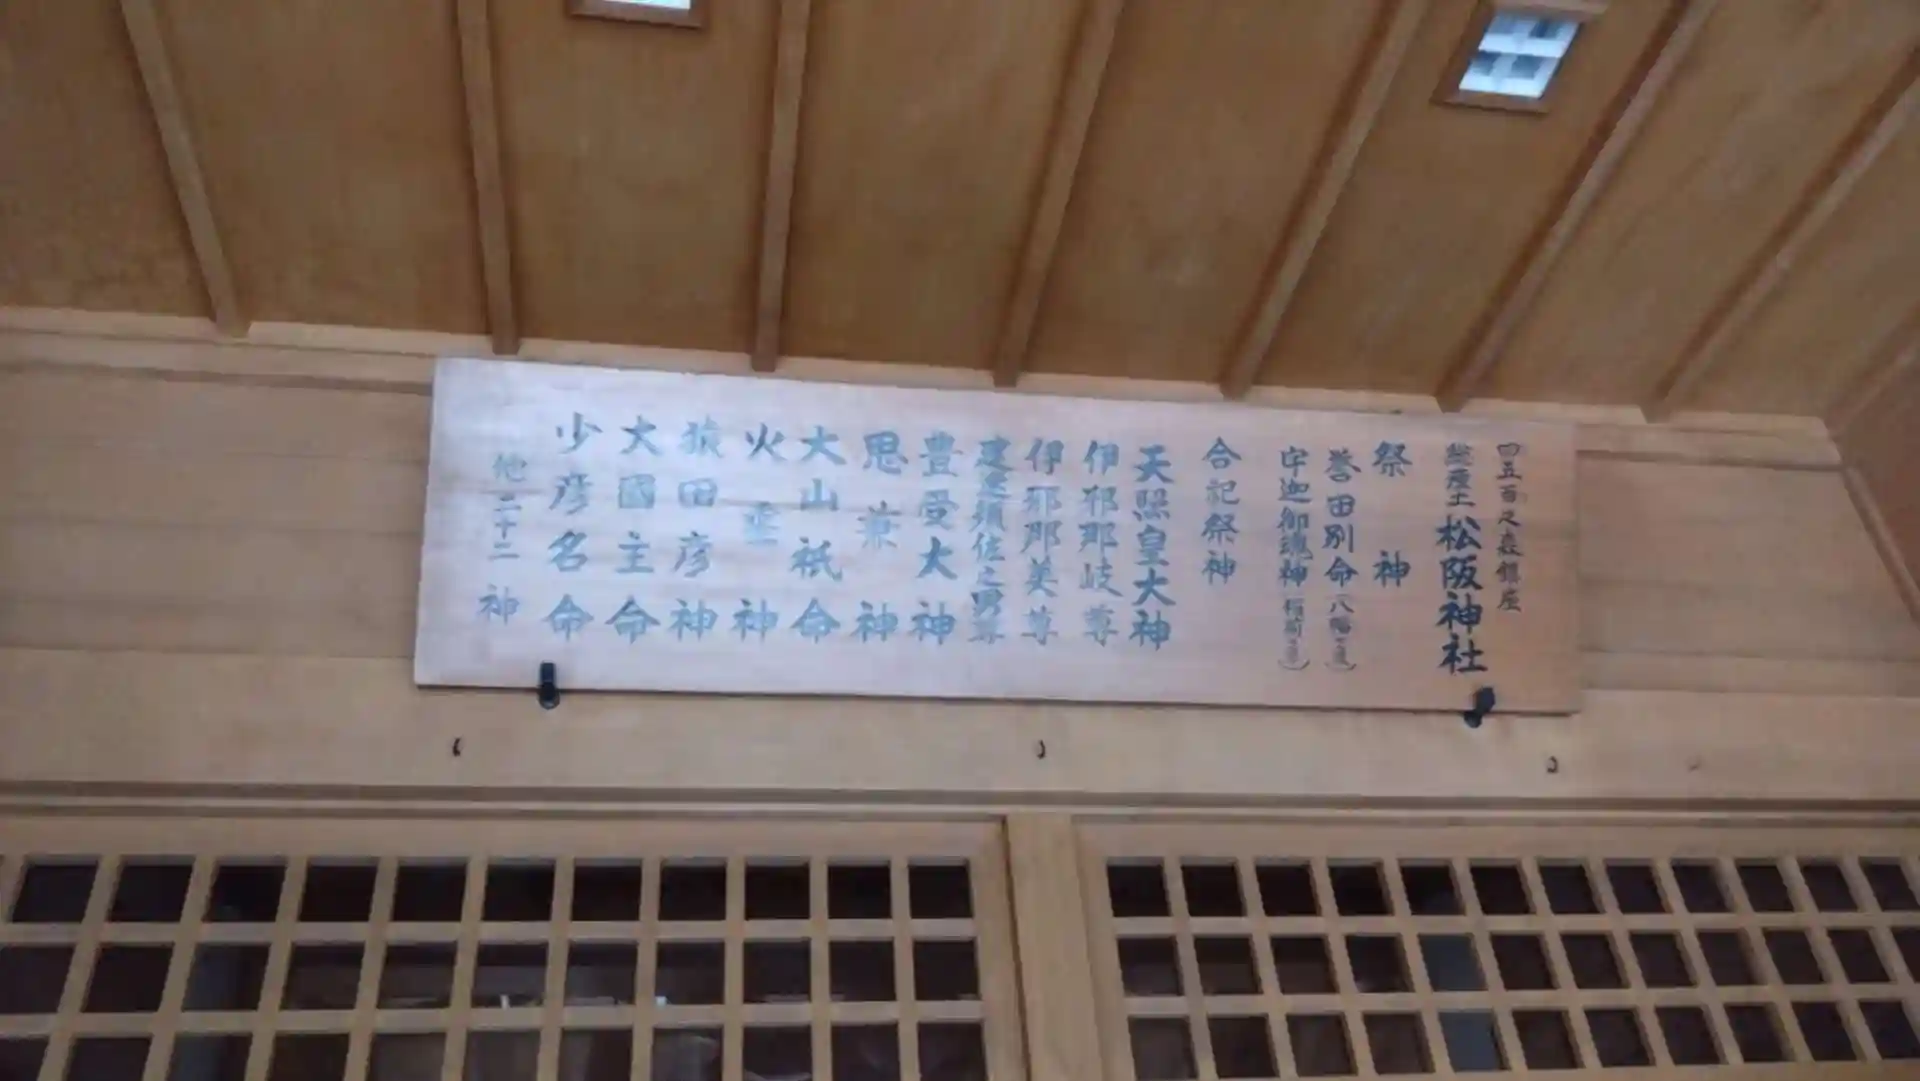 四五百之森鎮座
総産土 松阪神社
祭 神
誉田別命(八幡さま)
宇迦御魂神(稲荷さま)
合記祭神
天照皇大神
伊邪那岐尊
伊邪那美尊
建速須佐之男尊
豊受大神
思兼神
大山祇命
火産神
猿田彦神
大國主命
少彦名命
他二十二神